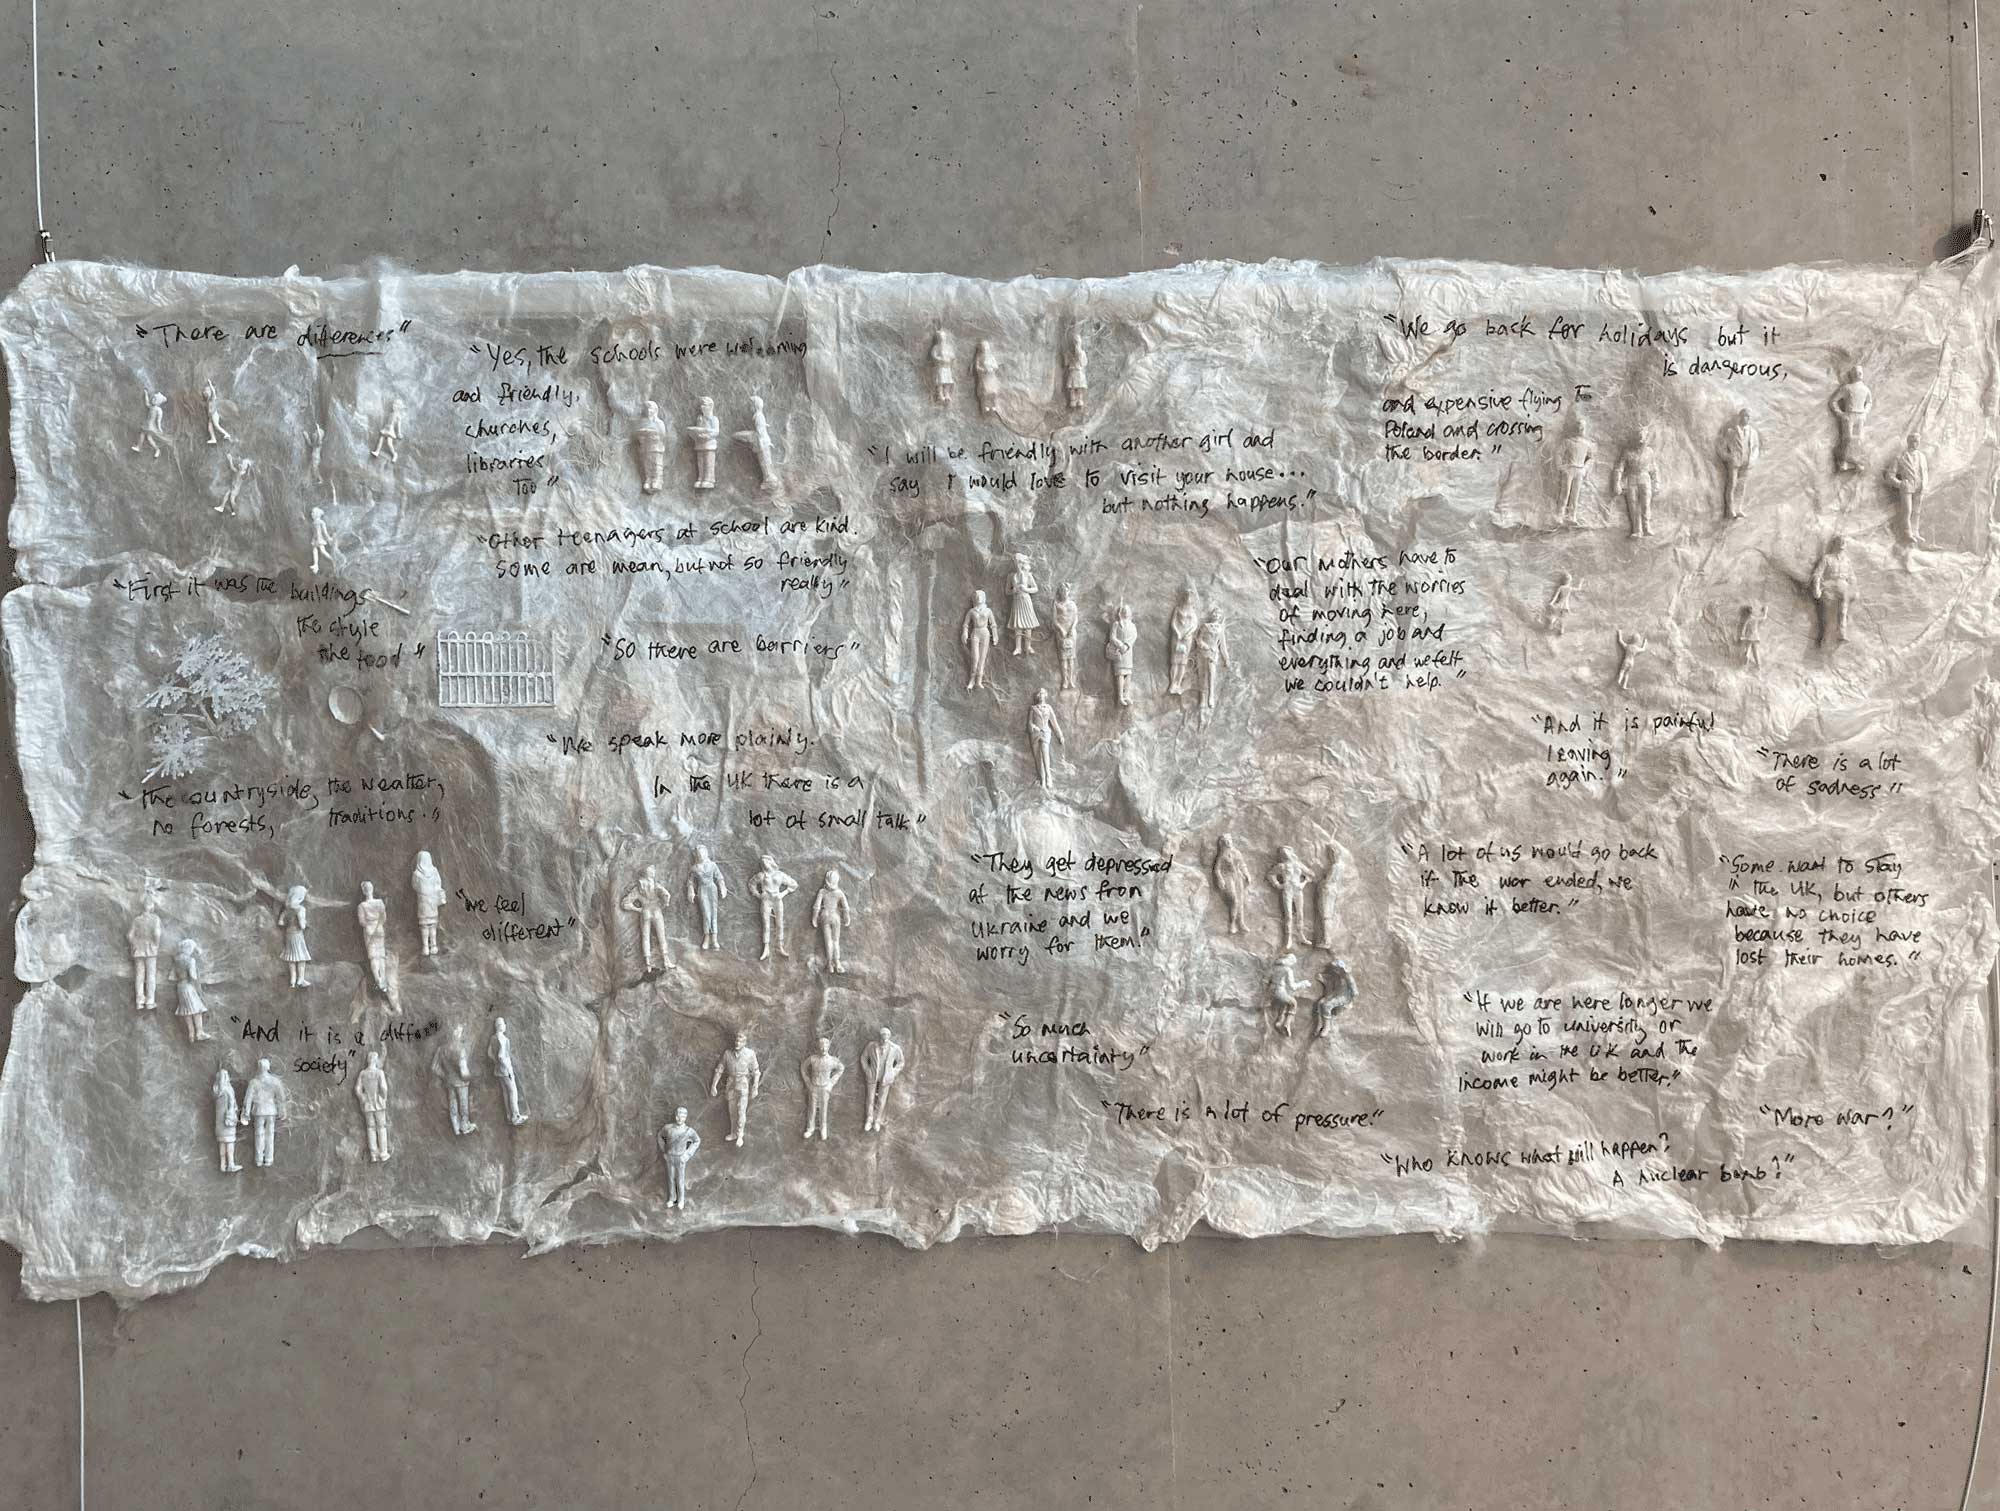 "There are differences"
"Yes, the schools were welcoming
and friendly,
churches,
libraries
too"
"Other teenagers at school are kind.
Some are mean, but not so friendly
really"
"First it was the buildings
the style
the food"
"So there are barriers"
"We speak more plainly.
In the UK there is a
lot of small talk"
"The countryside, the weather,
no forests, traditions."
"we feel
different"
"And it is a
society"
"I will be friendly with another girl and
say I would love to visit your house...
but nothing happens."
"Our mothers have to
deal with the worries
of moving here,
finding a job and
everything and we felt
we couldn't help."
"They get depressed
at the news from
Ukraine and we
worry for them."
"So much
uncertainty"
"There is a lot of pressure."
"We go back for holidays but it
is dangerous,
and expensive flying to
Poland and crossing
the border."
"And it is painful
leaving
again."
"There is a lot
of sadness."
"A lot of us would go back
if the war ended, we
know it better."
"Some want to stay
in the UK, but others
have no choice
because they have
lost their homes."
"If we are here longer we
will go to university or
work in the UK and the
income might be better."
"More war?"
"Who knows what will happen?
A nuclear bomb?"